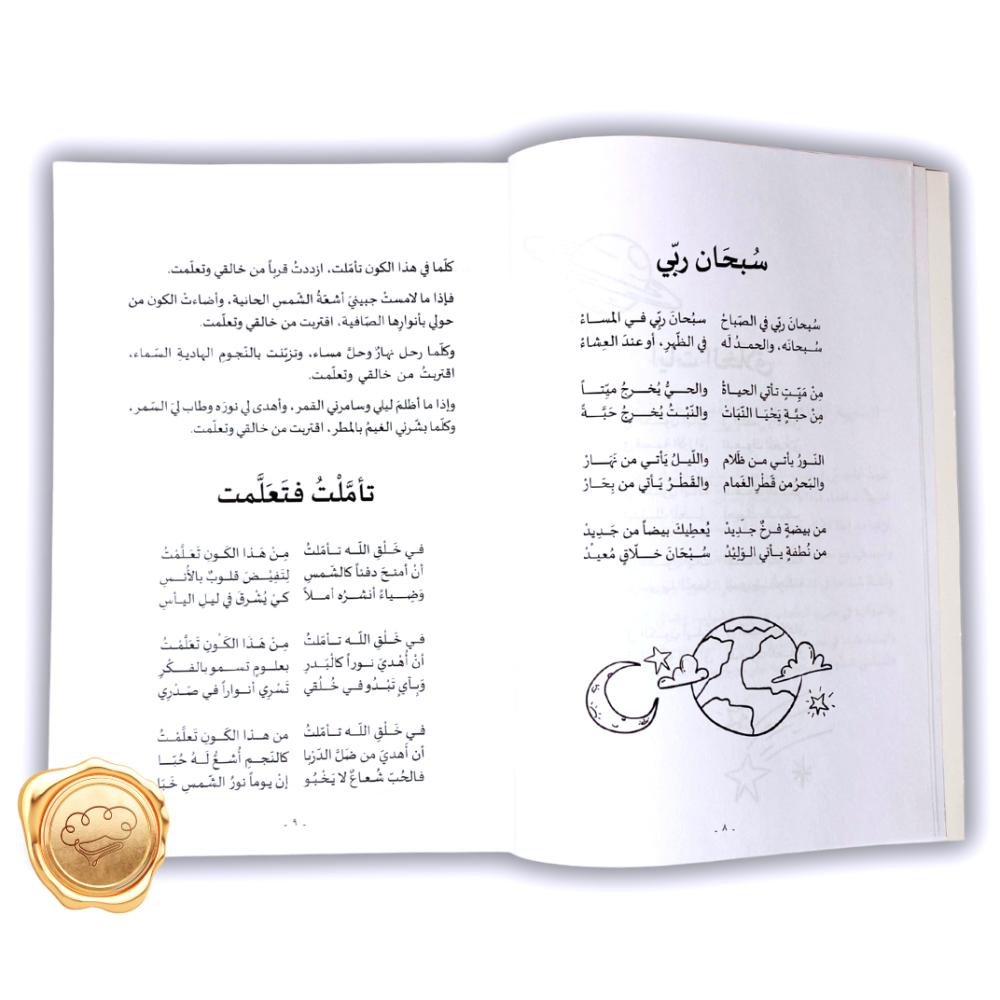 سُبحَان ربّي
سُبحانَ ربّي في الصّباحْ سبحُانَ ربِّي فـي المسـاءْ
سُبحانَه، والحمدُ لَه في الظّهرِ، أو عندَ العِشاءْ
مِنْ مَيِّتٍ تأتي الحياةُ والحـيُّ يُخـرجُ ميّتـاً
مِنْ حبَّةٍ يَحْيَـا النّباتْ والنَّبْتُ يُخرِجُ حَبَّـةً
النّورُ يأتي مـن ظَلام والليلُ يَأتي من نَهَـارْ
والبَحرُ من قَطْرِ الغَمام والقَطْرُ يَـأتي من بِحَارْ
من بيضةٍ فرخٌ جـديدْ يُعطِيكَ بيضاً من جَـدِيدْ
من نُطفةٍ يـأتي الـوَلِيْدْ سُـبْحَانَ خـلاَّقٍ مُعيدْ
- ٨ -
كلّما في هذا الكون تأمّلت، ازددتُ قرباً من خالقي وتعلّمت.
فإذا ما لامستْ جبينيَ أشعّةُ الشّمسِ الحانية، وأضاءتْ الكون من
حولي بأنوارِها الصّافية، اقتربت من خالقي وتعلّمت.
وكلّما رحل نهارٌ وحلَّ مساء، وتزيّنت بالنّجومِ الهاديةِ السّماء،
اقتربتُ من خالقي وتعلّمت.
وإذا ما أظلمَ ليلي وسامرني القمر، وأهدى لي نورَه وطاب ليَ السّمر،
وكلّما بشّرني الغيمُ بالمطر، اقتربت من خالقي وتعلّمت.
تأمَّلْتُ فتَعَلَّمت
فـي خَلْقِ اللّـه تـأمّلتُ مِـنْ هَـذا الكَـونِ تَعَلَّمْتُ
أنْ أمنـحَ دفئـاً كالشّمسِ لِتَفِيْـضَ قلـوبٌ بالأُنْـسِ
وَضِيـاءً أنشـرُه أمـلاً كـيْ يُشْـرقَ في ليـلِ اليـأسِ
فـي خَلْقِ اللّـه تـأمّلتُ مِـنْ هَـذا الكَـوْنِ تَعَلَّمْتُ
أنْ أُهْدِيَ نـوراً كَالْبَـدرِ بعلـومٍ تسـمـو بالفـكْرِ
وَبِـآيٍ تَبْـدُو فـي خُلُقي تَسْرِي أنـواراً في صَـدْرِي
فـي خَلْقِ اللّـه تـأمّلتُ من هـذا الكَـونِ تعلَّمْتُ
أن أهديَ من ضَلَّ الدّرْبا كالنّجمِ أُشـعُّ لَـهُ حُبّـا
فالحُبّ شُعاعٌ لا يَخْبُو إنْ يومـاً نورُ الشّمسِ خَبَا
- ٩ -